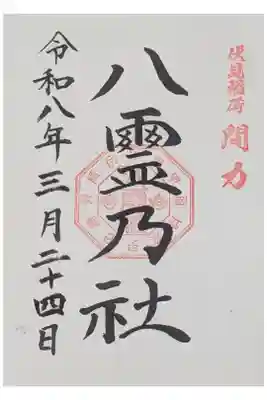 伏見稲荷
間力
八靈乃社
令和八年三月二十四日